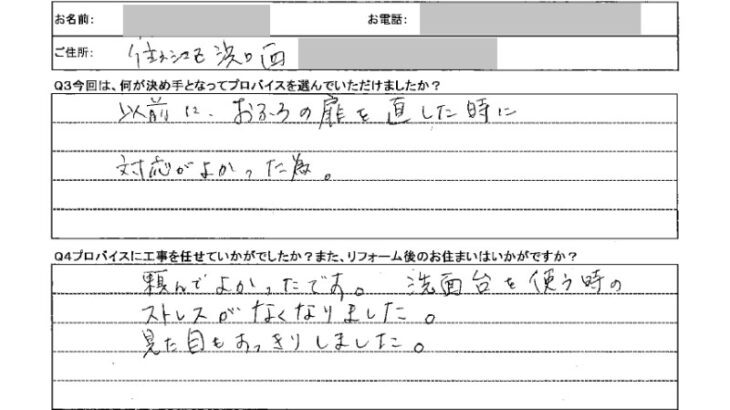 お名前: お電話:
ご住所: 住之江区浜口西
Q3今回は、何が決め手となってプロバイスを選んでいただけましたか?
以前に、おふろの扉を直した時に
対応がよかった為。
Q4プロバイスに工事を任せていかがでしたか?また、リフォーム後のお住まいはいかがですか?
頼んでよかったです。 洗面台を使う時の
ストレスがなくなりました。
見た目もすっきりしました。